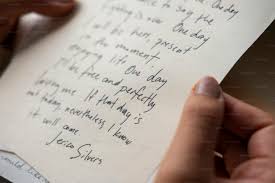 to say the
is now One day
will be here, present
in the moment
enjoying life. One day
I'll be free and perfectly
If that day is
not today, nevertheless, I know
it will come.
Jerico Silvers